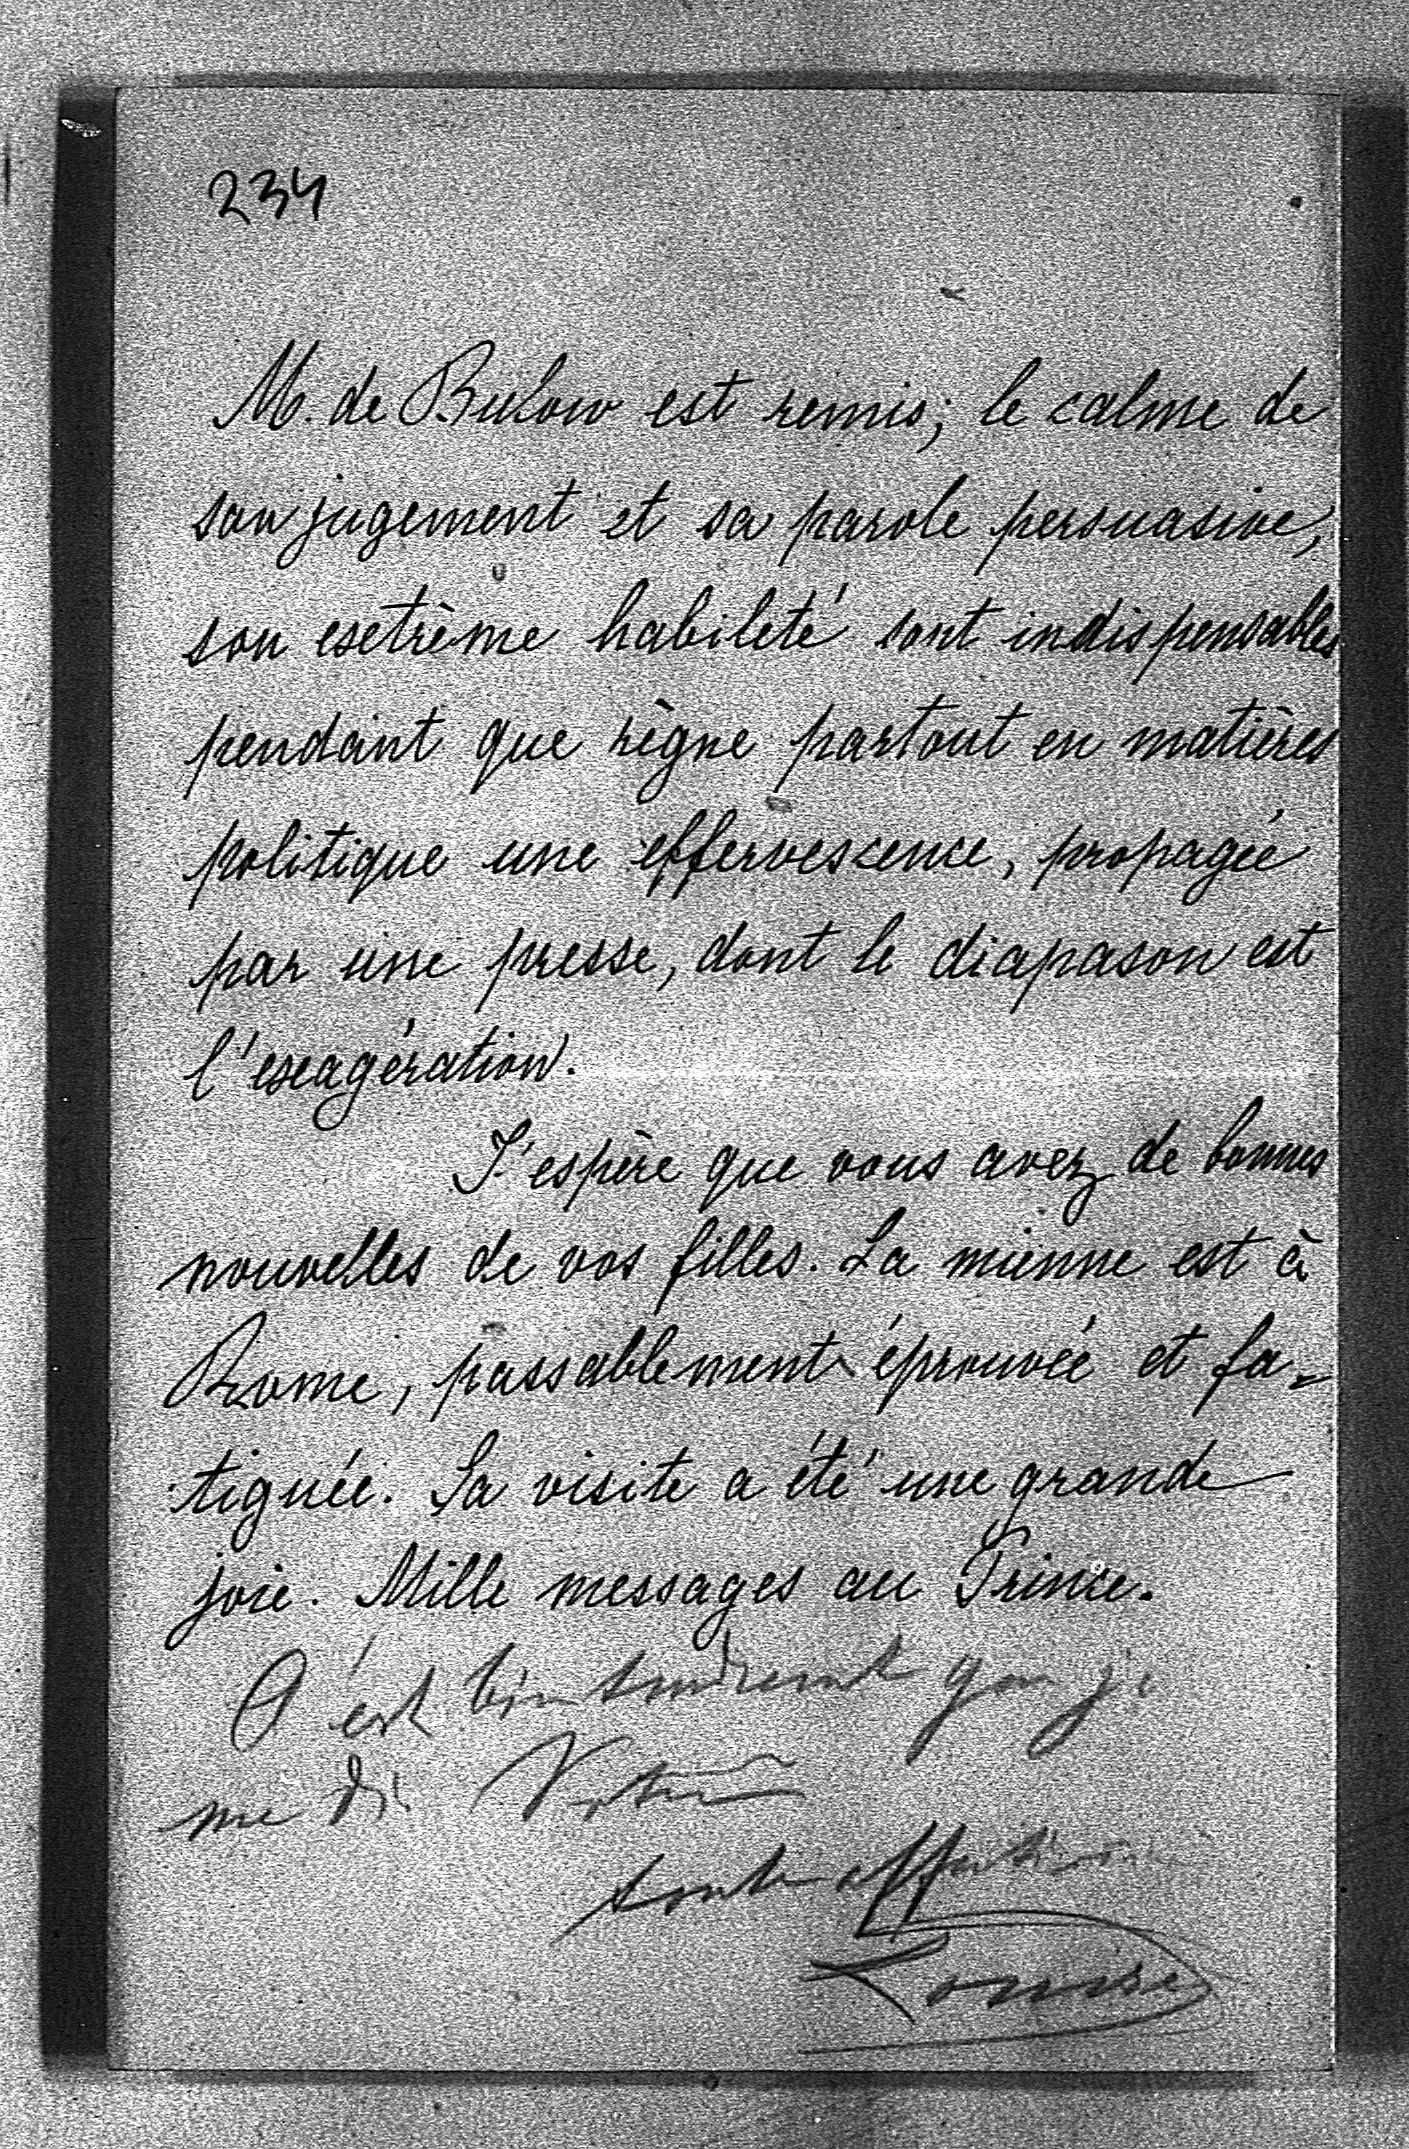 234
M. de Bulow est remis; le calme de
son jugement et sa parole persuasive,
son extrème habileté sont indispensables
pendant que règne partout en matières
politique une effervescence, propagée
par une presse, dont le diapason est
l'exagération.
J'espère que vous avez de bonnes
nouvelles de vos filles. La mienne est à
Rome, passablement éprouvée et fa-
tiguée. Sa visite a été une grande
joie. Mille messages au Prince.
C'est bien tendrement que je
me dis Votre
toute affectionnée
Louise